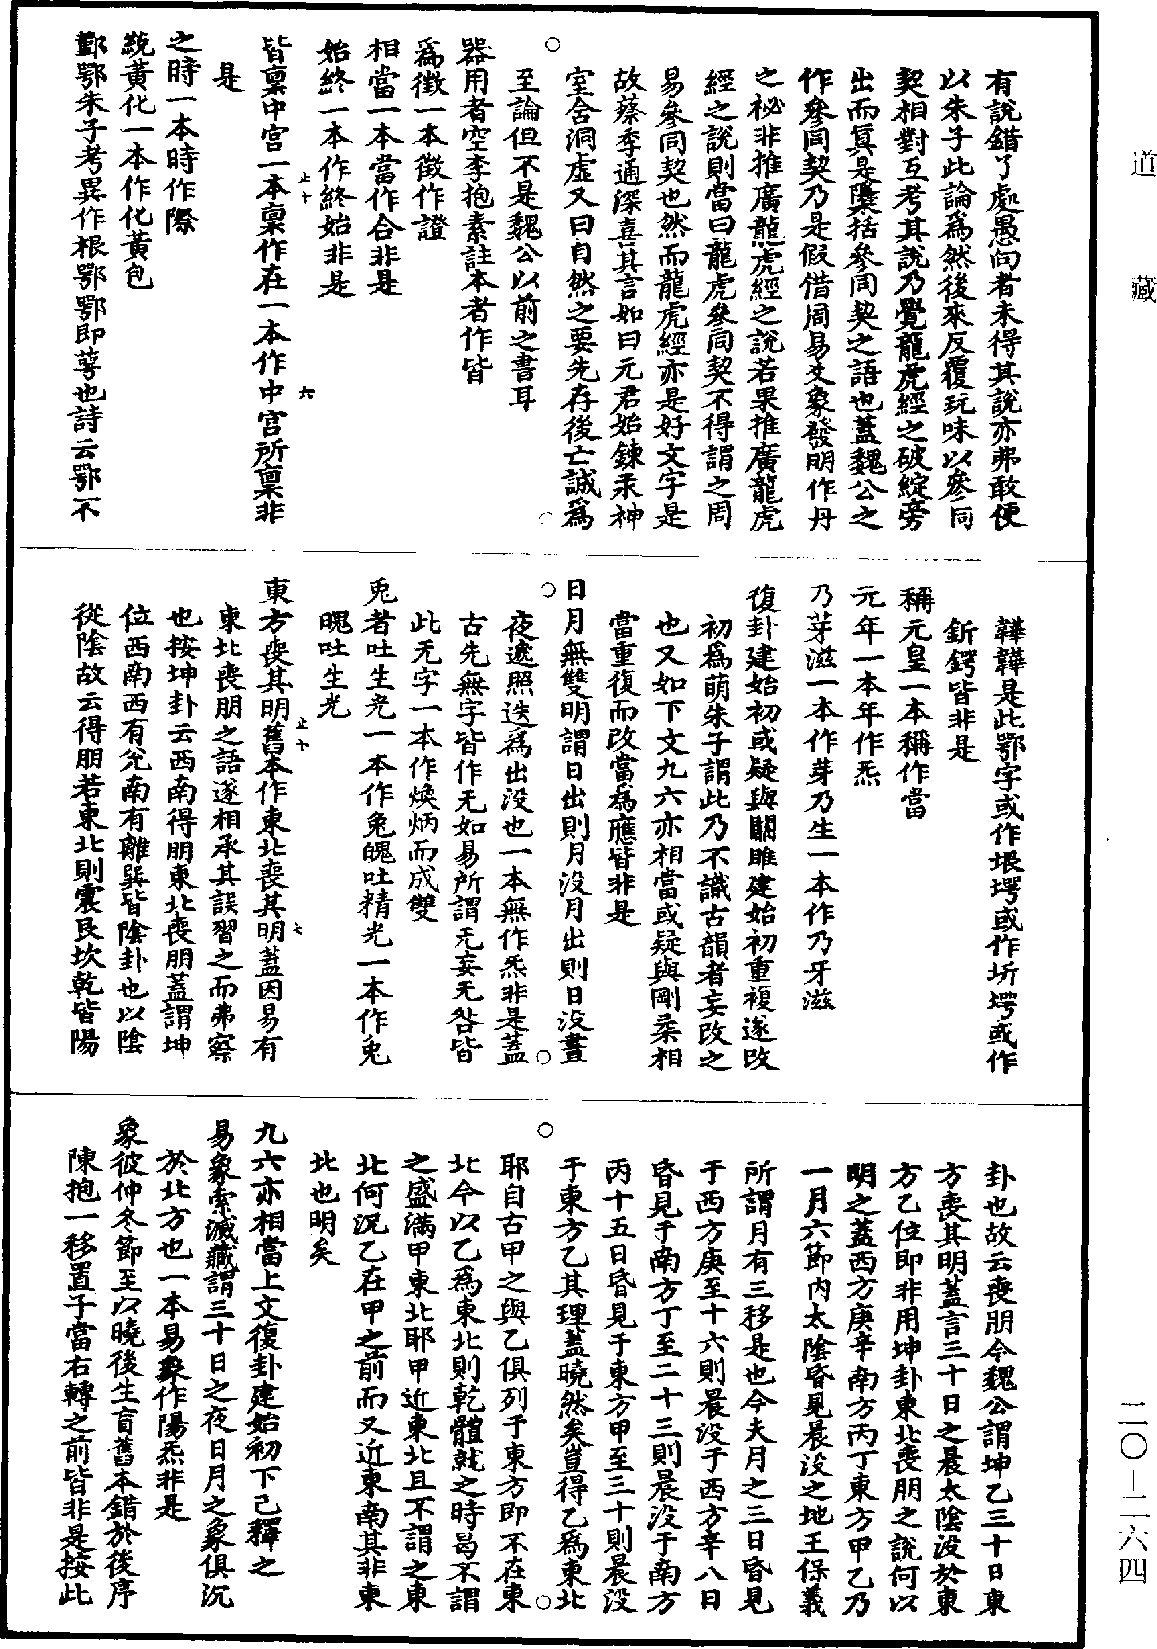 道藏
有說錯了處愚向者未得其說亦弗敢便
以朱子此論爲然後來反覆玩味以參同
契相對互考其說乃覺龍虎經之破綻旁
出而眞是櫽括參同契之語也蓋魏公之
作參同契乃是假借周易爻象發明作丹
之祕非推廣龍虎經之說若果推廣龍虎
經之說則當曰龍虎參同契不得謂之周
易參同契也然而龍虎經亦是好文字是
故蔡季通深喜其言如曰元君始鍊汞神
室含洞虛又曰自然之要先存後亡誠爲
至論但不是魏公以前之書耳
器用者空李抱素註本者作皆
爲徵一本徵作證
相當一本當作合非是
始終一本作終始非是
皆稟中宮一本稟作在一本作中宮所稟非
是
之時一本時作際
統黃化一本作化黃包
鄞鄂朱子考異作根鄂鄂即萼也詩云鄂不
韡韡是此鄂字或作垠堮或作圻堮或作
釿鍔皆非是
稱元皇一本稱作當
元年一本年作炁
乃芽滋一本作芽乃生一本作乃牙滋
復卦建始初或疑與關雎建始初重複遂改
初爲萌朱子謂此乃不識古韻者妄改之
也又如下文九六亦相當或疑與剛柔相
當重復而改當爲應皆非是
日月無雙明謂日出則月沒月出則日沒晝
夜遞照迭爲出沒也一本無作炁非是蓋
古先無字皆作无如易所謂无妄无咎皆
此无字一本作煥炳而成雙
兎者吐生光一本作兔魄吐精光一本作兎
魄吐生光
東方喪其明舊本作東北喪其明蓋因易有
東北喪朋之語遂相承其誤習之而弗察
也按坤卦云西南得朋東北喪朋蓋謂坤
位西南西有兌南有離巽皆陰卦也以陰
從陰故云得朋若東北則震艮坎乾皆陽
卦也故云喪朋今魏公謂坤乙三十日東
方喪其明蓋言三十日之晨太陰沒於東
方乙位即非用坤卦東北喪朋之說何以
明之蓋西方庚辛南方丙丁東方甲乙乃
一月六節內太陰昏見晨沒之地王保義
所謂月有三移是也今夫月之三日昏見
于西方庚至十六則晨沒于西方辛八日
昏見于南方丁至二十三則晨沒于南方
丙十五日昏見于東方甲至三十則晨沒
于東方乙其理蓋曉然矣豈得乙爲東北
耶自古甲之與乙俱列于東方即不在東
北今以乙爲東北則乾體就之時曷不謂
之盛滿甲東北耶甲近東北且不謂之東
北何況乙在甲之前而又近東南其非東
北也明矣
九六亦相當上文復卦建始初下已釋之
易象索滅藏謂三十日之夜日月之象俱沉
於北方也一本易象作陽炁非是
象彼仲冬節至以曉後生盲舊本錯於後序
陳抱一移置子當右轉之前皆非是按此
二〇—二六四